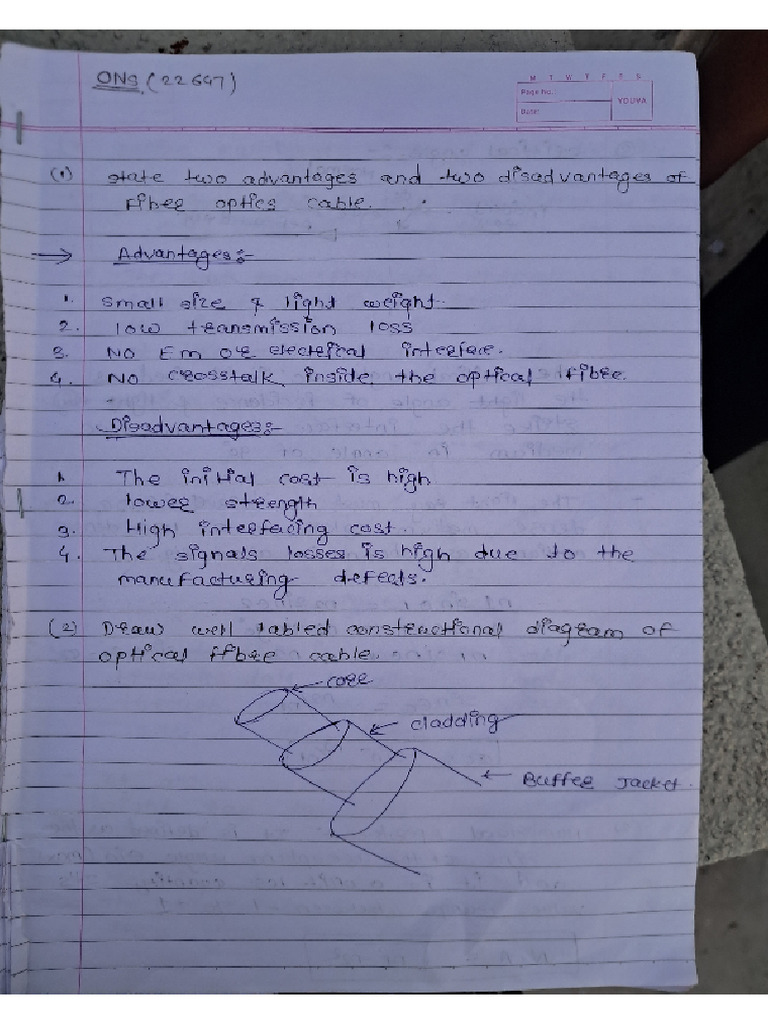 ONS. (22647)
M T W T F S S
Page No.:
Date:
YOUVA
(1) state two advantages and two disadvantages of
Fiber optics cable.
→ Advantages:-
1. small size & light weight.
2. low transmission loss
3. No EM or electrical interface.
4. No crosstalk inside the optical fibre.
Disadvantages:-
1. The initial cost is high
2. lower strength
3. High interfacing cost.
4. The signals losses is high due to the
manufacturing defects.
(2) Draw well labled constructional diagram of
optical fibre cable.
core
cladding
Buffer Jacket.